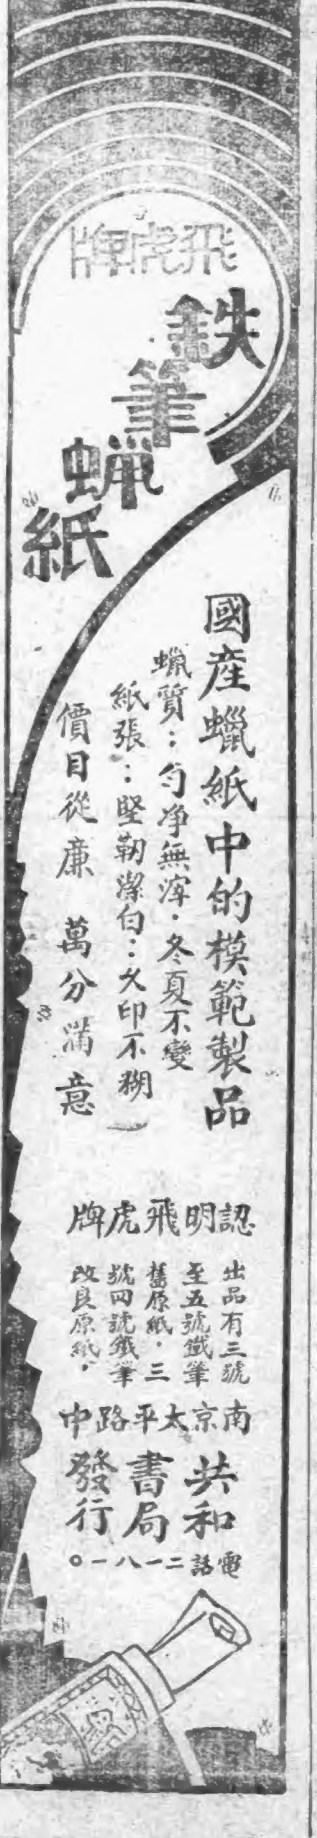 飛虎牌
鉄筆蠟紙
國産蠟紙中的模範製品
蠟質：勻净無滓．冬夏不變
紙張：堅韌潔白：久印不糊
價目從廉　萬分满意
認明飛虎牌
出品有三號
至五號鐵筆
舊原紙．三
號四號鐵筆
改良原紙．
南京太平路中
共和書局發行
電話二一八一〇